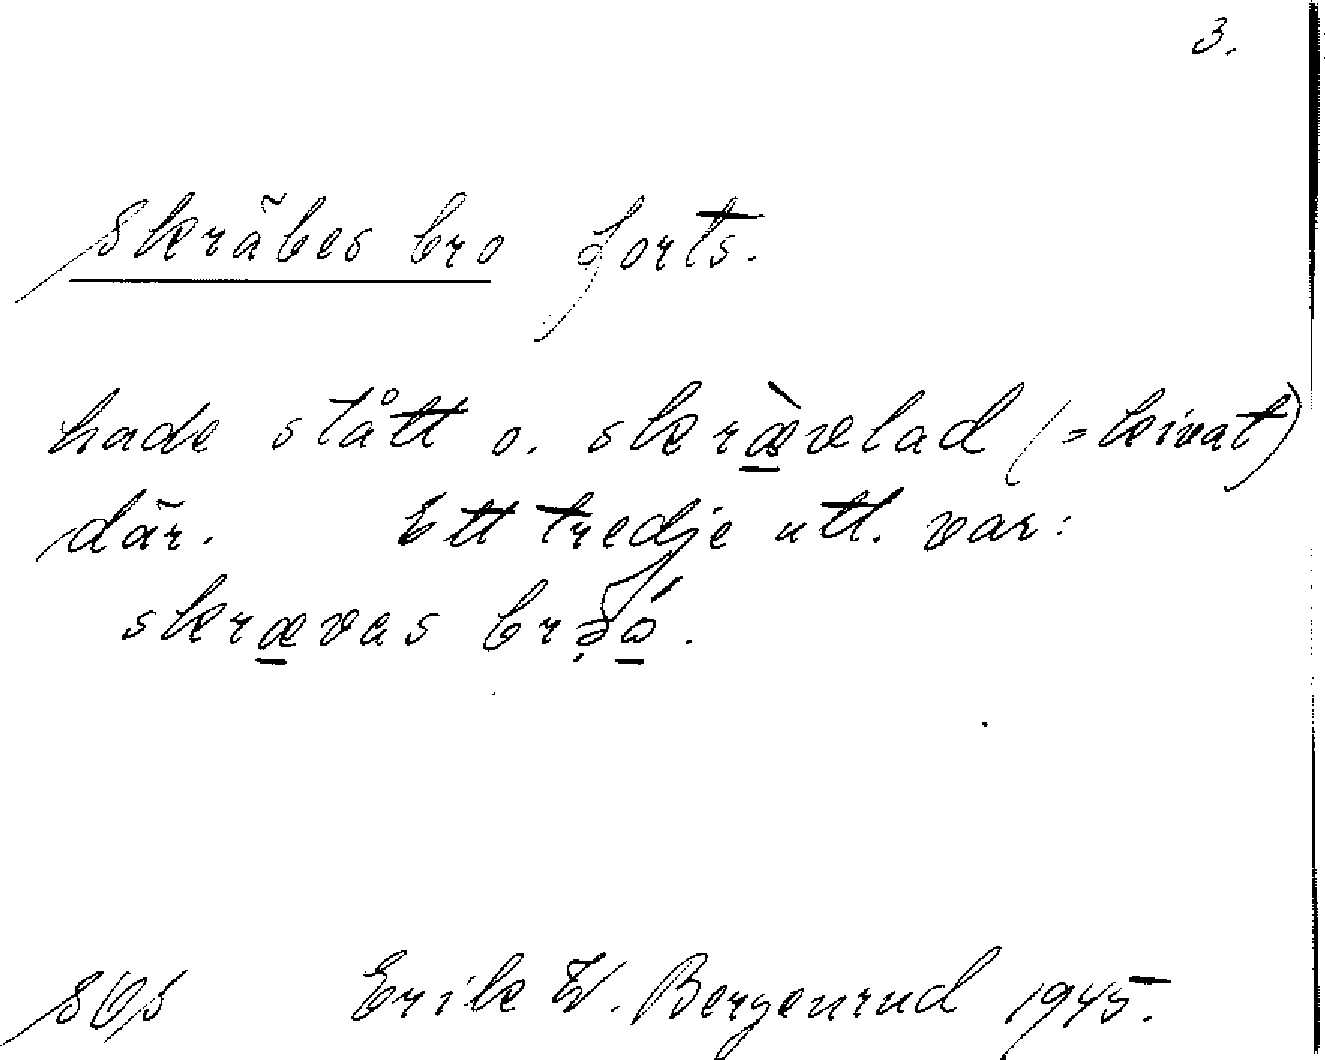 3.
Skräbes bro forts.
hade stått o. skræ̀velad (= kivat)
där. Ett tredje utt. var:
skrævas
Erik W. Bergenrud 1945.